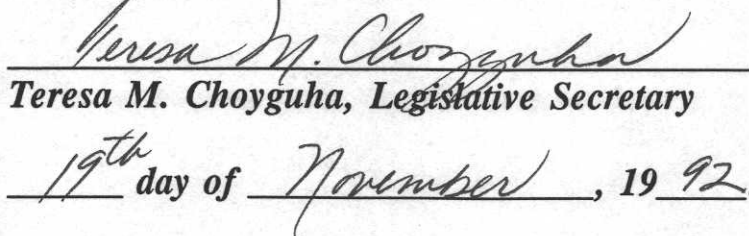 Teresa M. Choyguha
Teresa M. Choyguha, Legislative Secretary
19th day of November, 19 92